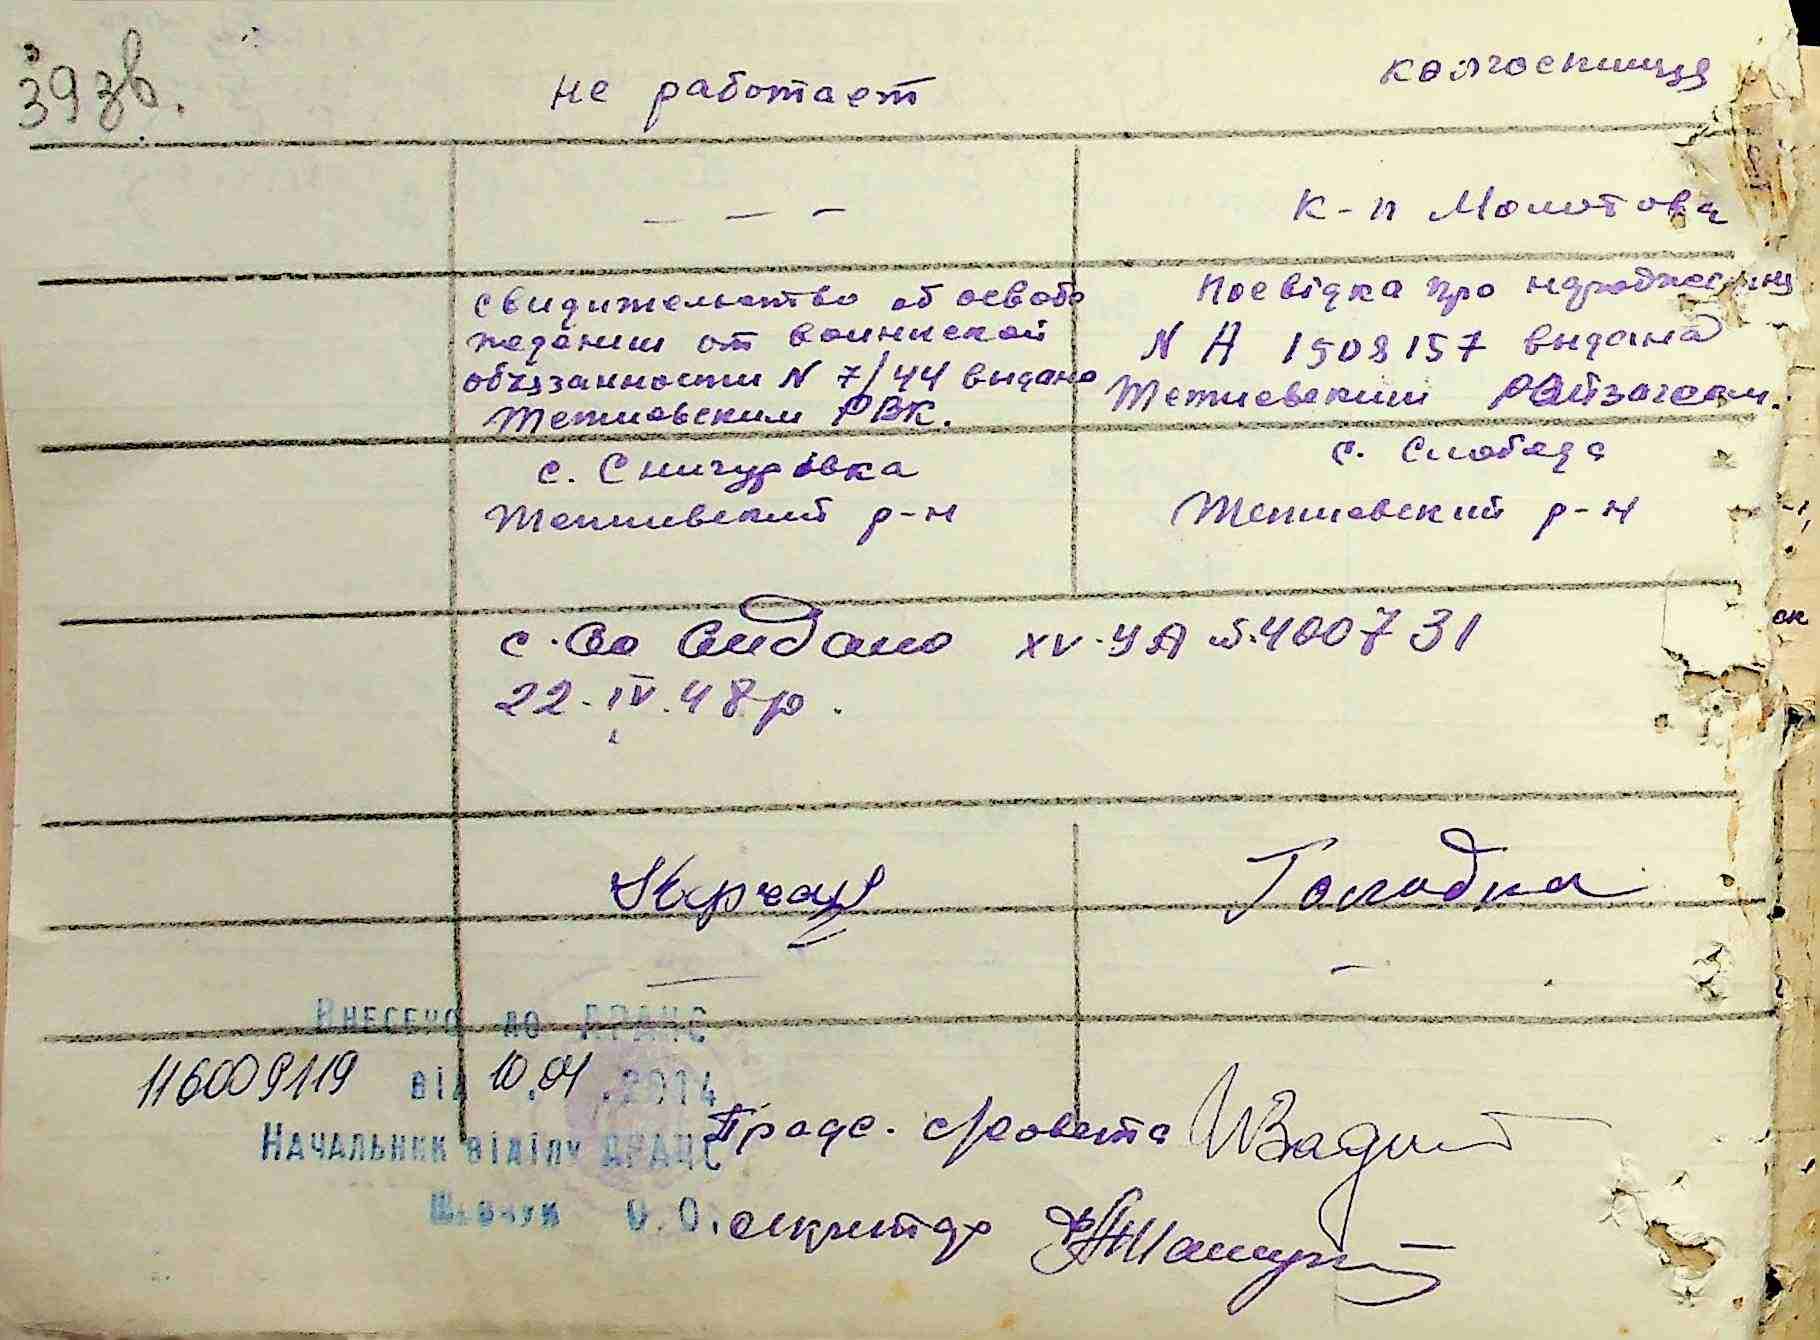 39 зв.
не работает
колгоспниця
- - -
к-п Молотова
свидительство об освобо
ждении от воинской
обязанности N 7/44 выдано
Тетиевским РВК.
Посвідка про народження
N А 1508157 видана
Тетиевский Райзагсом.
с. Снигурівка
Тетиевский р-н
с. Слобода
Тетиевский р-н
с.во видано XV-УА №400731
22.IV.48р.
Голодна
Внесено до ДРАЦС
116009119 від 10.04.2014
Начальник відділу ДРАЦС
Шевчук О.О.
Предс. с/совета
секретар